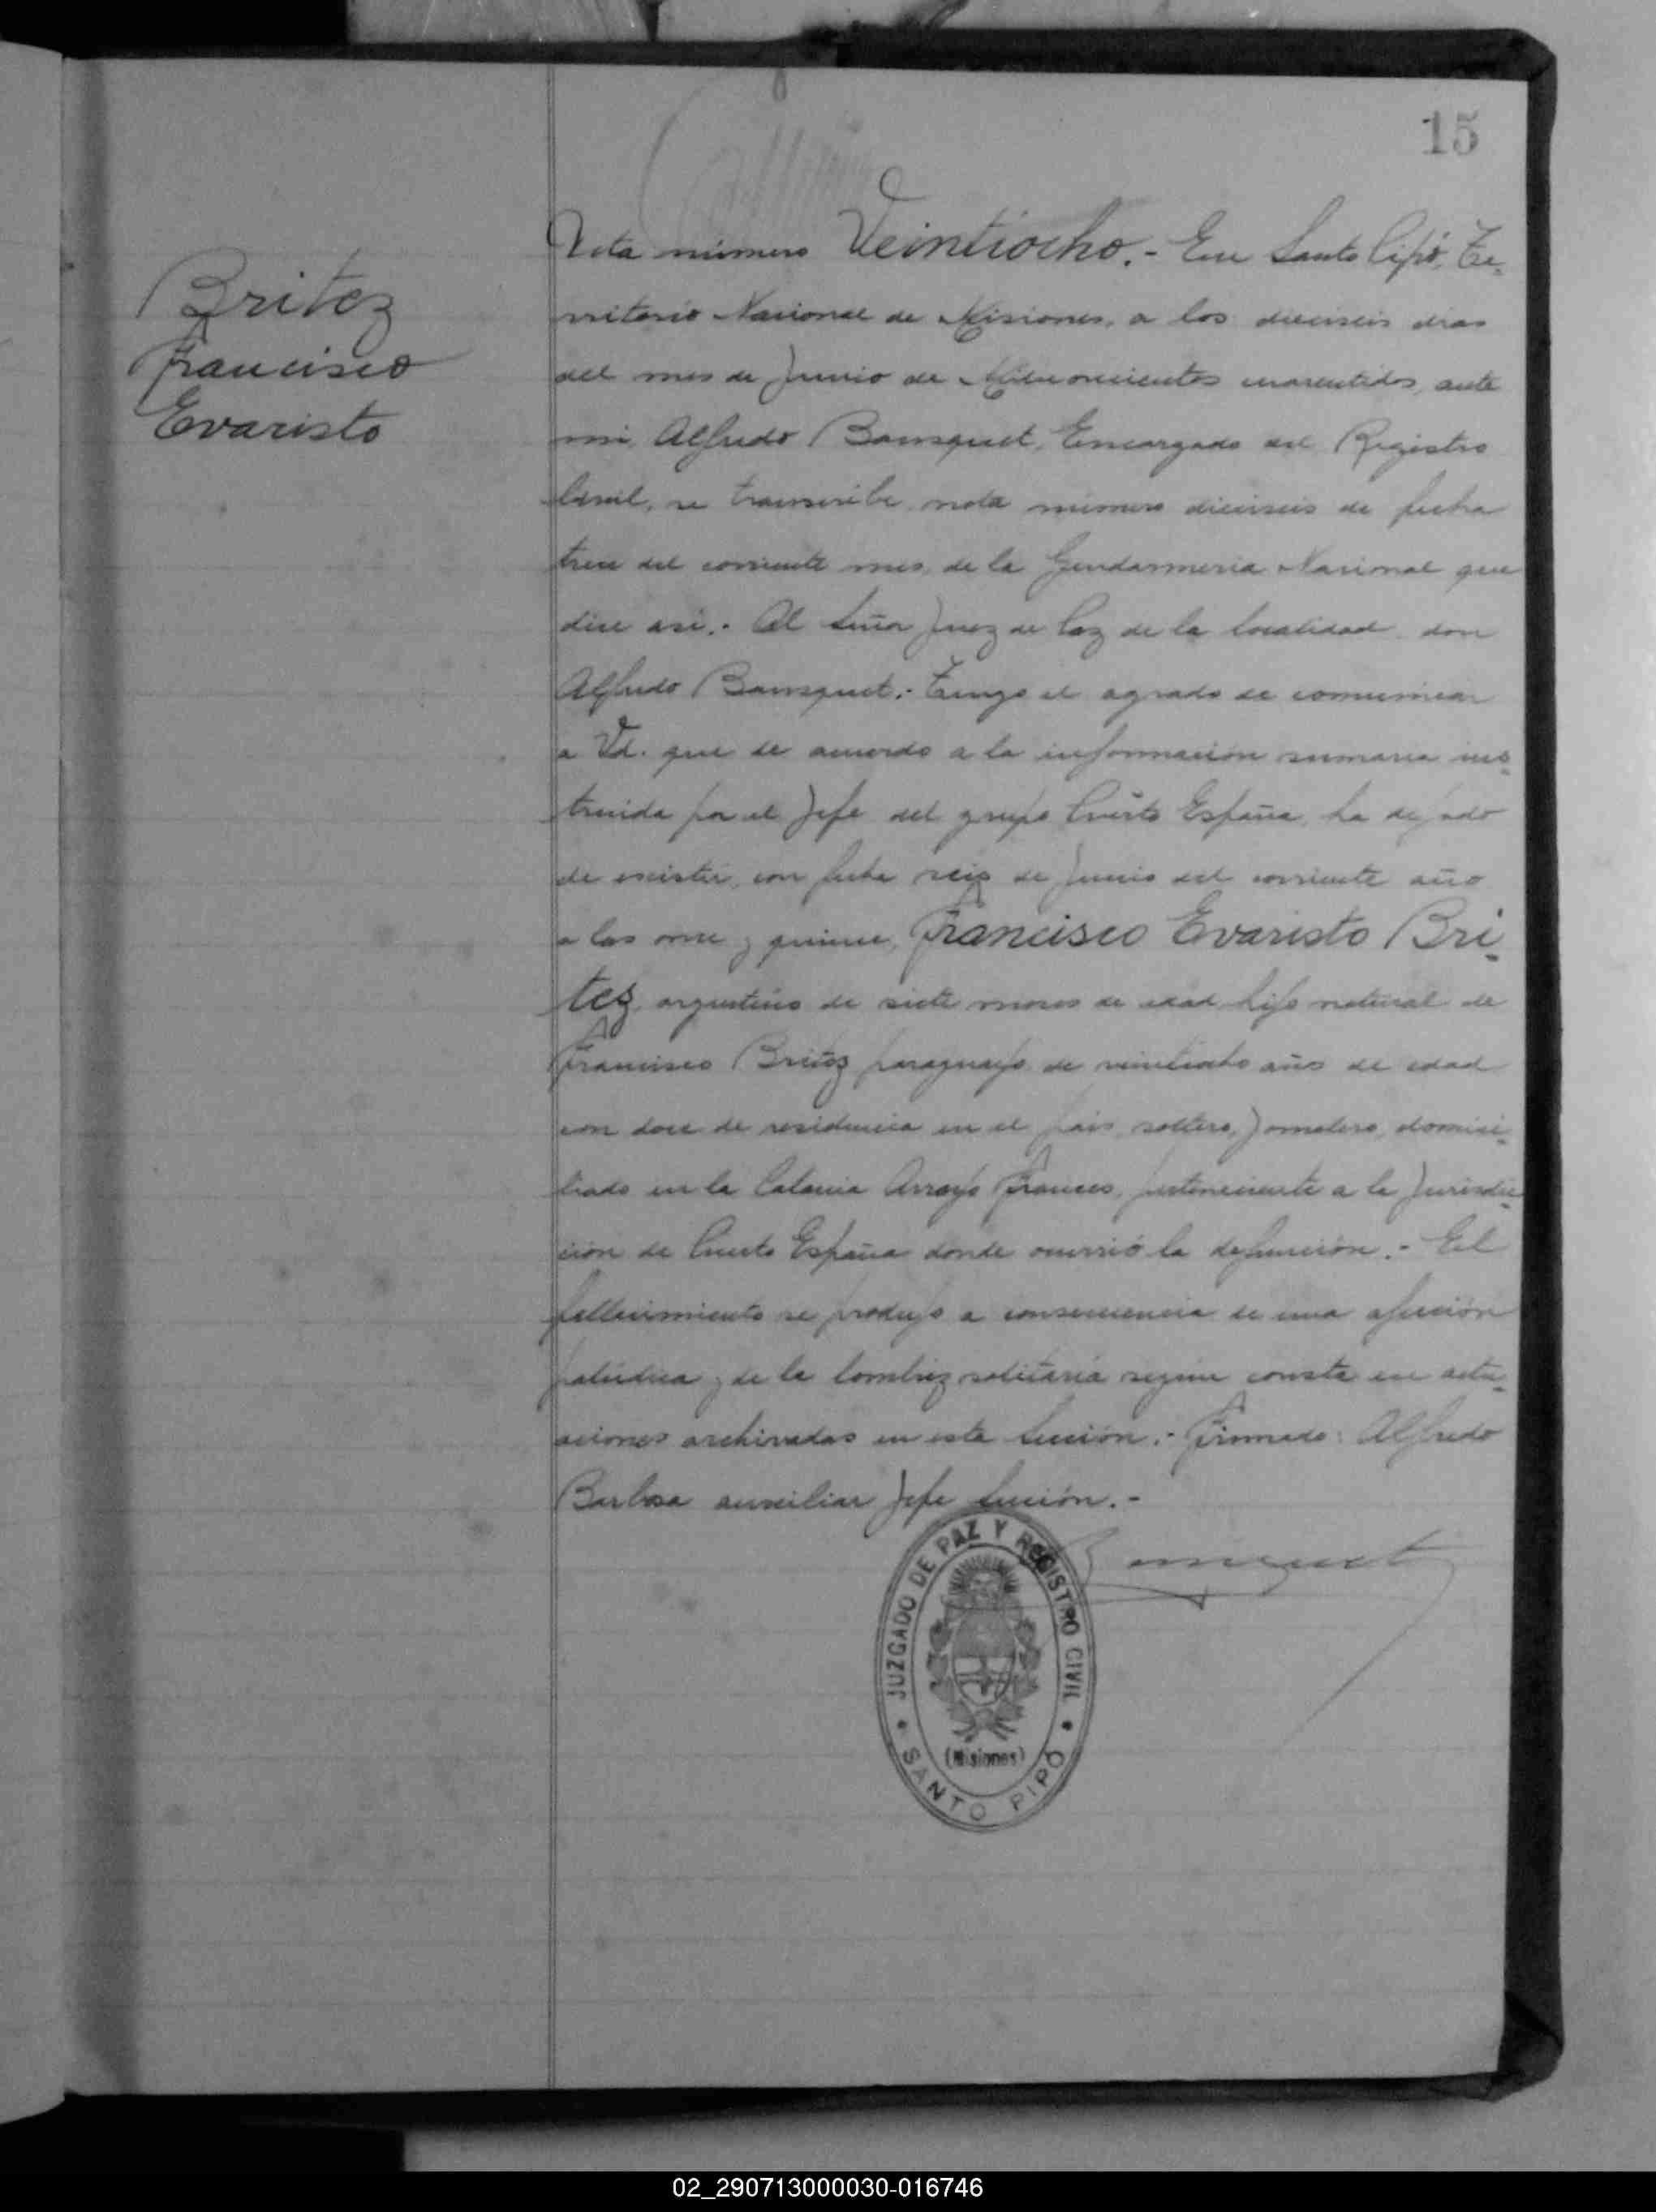 15
Britez
Francisco
Evaristo
Acta número Veintiocho.- En Santo Pipó, Te-
rritorio Nacional de Misiones, a los dieciseis dias
del mes de Junio de Milnovecientos cuarentidos, ante
mi, Alfredo Bousquet, Encargado del Registro
Civil, se transcribe nota número dieciseis de fecha
trece del corriente mes, de la Gendarmeria Nacional que
dice asi.- Al Señor Juez de Paz de la localidad don
Alfredo Bousquet.- Tengo el agrado de comunicar
a Vd. que de acuerdo a la información sumaria ins-
truida por el Jefe del grupo Puerto España, ha dejado
de existir, con fecha seis de Junio del corriente año
a las once y quince, Francisco Evaristo Bri-
tez, argentino de siete meses de edad hijo natural de
Francisco Britez paraguayo de veintiocho años de edad
con doce de residencia en el pais, soltero, Jornalero, domici-
liado en la Colonia Arroyo Frances, perteneciente a la Jurisdic-
ción de Puerto España donde ocurrió la defunción.- El
fallecimiento se produjo a consecuencia de una afección
palúdica y de la lombriz solitaria según consta en actu-
aciones archivadas en esta Sección.- Firmado: Alfredo
Barbosa auxiliar Jefe Sección.-
Bousquet
JUZGADO DE PAZ Y REGISTRO CIVIL
(Misiones)
SANTO PIPÓ
02_290713000030-016746